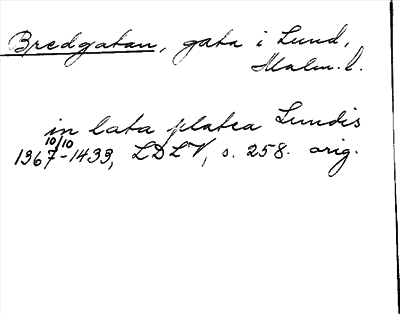 Bredgatan, gata i Lund,
Malm. l.
in lata platea Lundis
10/10
1367-1433, LDLV, s. 258. orig.